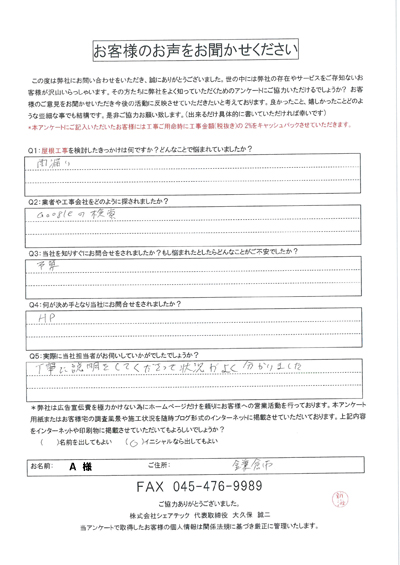 お客様のお声をお聞かせください
この度は弊社にお問い合わせをいただき、誠にありがとうございました。世の中には弊社の存在やサービスをご存知ないお
客様が沢山いらっしゃいます。その方たちに弊社をよく知っていただくためのアンケートにご協力いただけるでしょうか? お客
様のご意見をお聞かせいただき今後の活動に反映させていただきたいと考えております。良かったこと、嬉しかったことどのよ
うな些細な事でも結構です。是非ご協力お願い致します。(出来るだけ具体的に書いていただければ幸いです)
*本アンケートにご記入いただいたお客様には工事ご用命時に工事金額(税抜き)の 2%をキャッシュバックさせていただきます。
Q1:屋根工事を検討したきっかけは何ですか?どんなことで悩まれていましたか?
雨漏り
Q2:業者や工事会社をどのように探されましたか?
Googleの検索
Q3:当社を知りすぐにお問合せをされましたか?もし悩まれたとしたらどんなことがご不安でしたか?
予算
Q4:何が決め手となり当社にお問合せをされましたか?
HP
Q5:実際に当社担当者がお伺いしていかがでしたでしょうか?
丁寧に説明をしてくださって状況がよく分かりました
*弊社は広告宣伝費を極力かけない為にホームページだけを頼りにお客様への営業活動を行っております。本アンケート
用紙またはお客様宅の調査風景や施工状況を随時ブログ形式のインターネットに掲載させていただいております。上記内容
をインターネットや印刷物に掲載させていただいてもよろしいでしょうか?
( )名前を出してもよい (○)イニシャルなら出してもよい
お名前: A 様 ご住所: 鎌倉市
FAX 045-476-9989
ご協力ありがとうございました。
株式会社シェアテック 代表取締役 大久保 誠二
当アンケートで取得したお客様の個人情報は関係法規に基づき厳正に管理いたします。